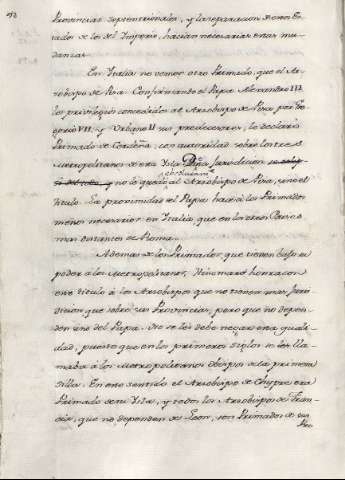 Provincias septentrionales, y la separacion de estos Es-
tados de los del Imperio, hacian necesarias estas mu-
danzas.
En Italia no vemos otro Primado, que el Ar-
zobispo de Pisa. Confirmando el Papa Alexandro III.
los privilegios concedidos al Arzobispo de Pisa por Gre-
gorio VII. y Urbano II sus predecesores, lo declaró
Primado de Cerdeña, con autoridad sobre los tres
Metropolitanos de esta Isla.
y no le quedó al Arzobispo de Pisa, sino el
titulo. La proximidad del Papa hacia los Primados
menos necesarios en Italia, que en los otros Paises
mas distantes de Roma.
Ademas de los Primados, que tienen baxo su
poder a los Metropolitanos, Hincmaro honra con
este titulo à los Arzobispos que no tienen mas juris-
diccion que sobre sus Provincias, pero que no depen-
den sino del Papa. No se les debe negar esta quali-
dad, puesto que en los primeros siglos se les lla-
maba à los Metropolitanos Obispos de la primera
Silla. En este sentido el Arzobispo de Chypre era
Primado de su Isla, y todos los Arzobispos de Fran-
cia, que no dependen de Leon, son Primados de sus
Pro-